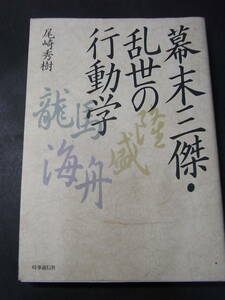 幕末三傑・
乱世の
行動学
尾崎秀樹
隆盛
龍馬
海舟
時事通信社